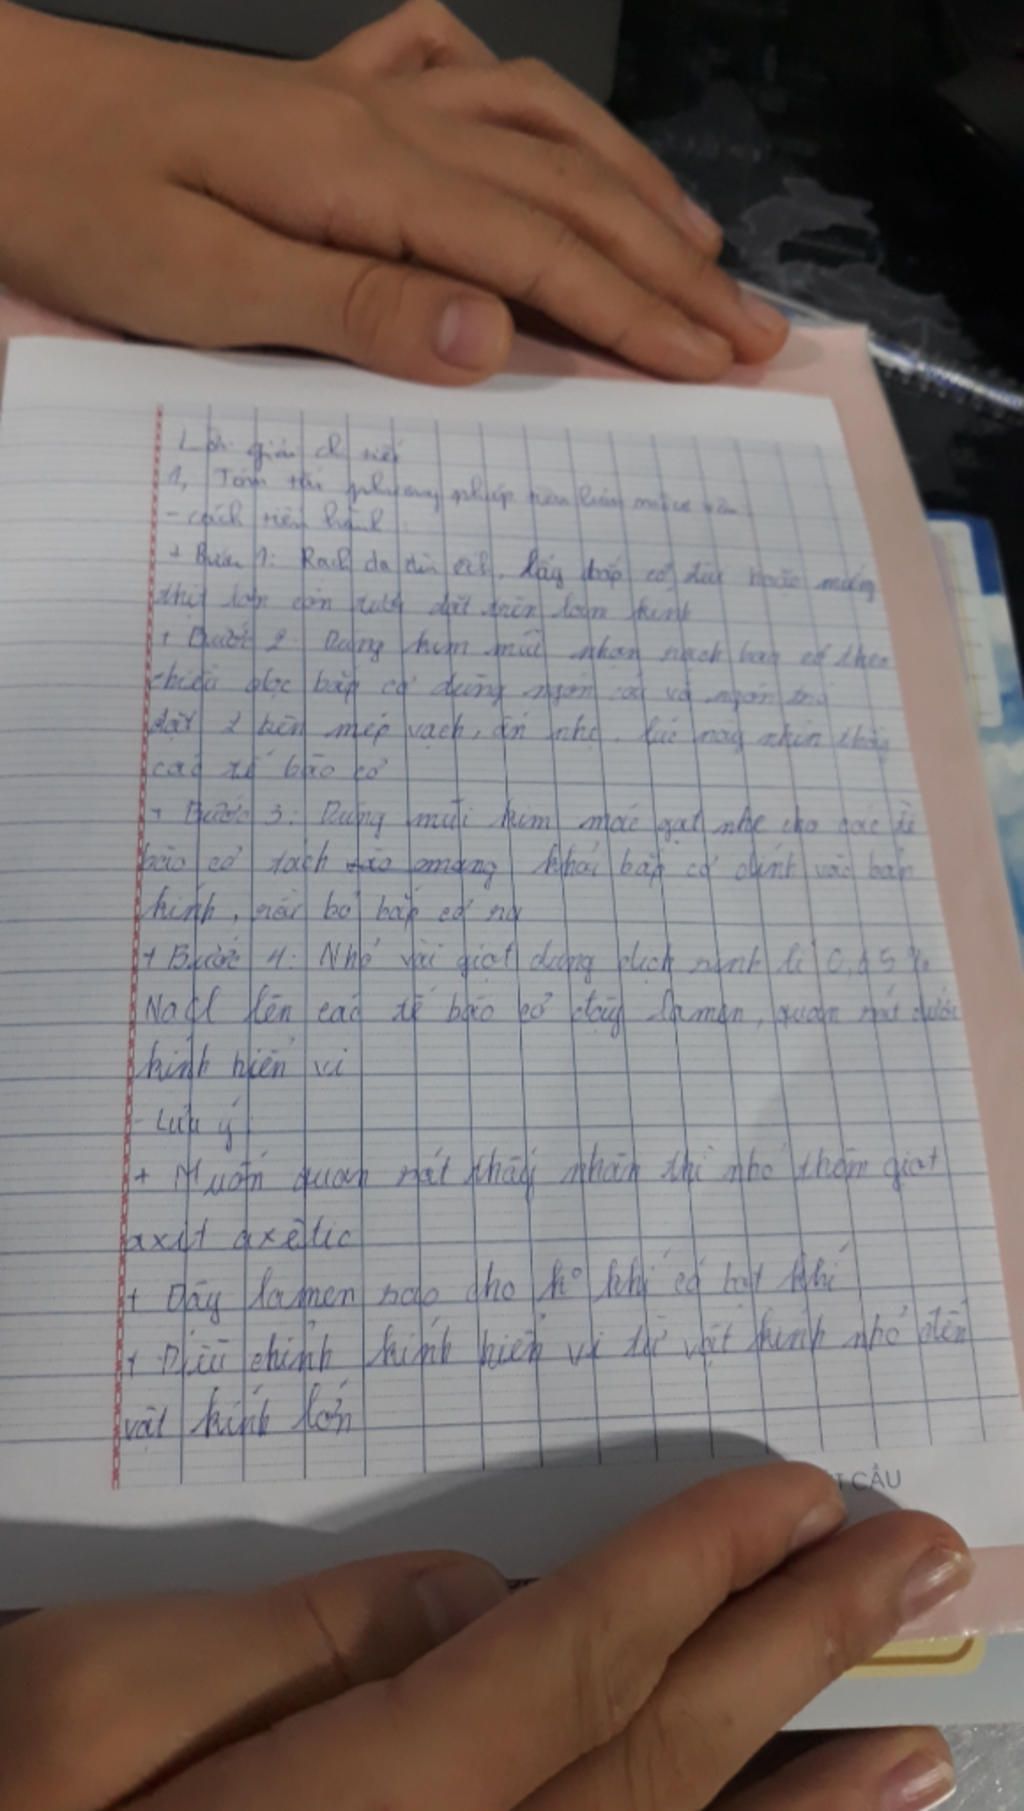 Lời giải chi tiết
1, Tóm tắt phương pháp làm tiêu
- cách tiến hành
+ Bước 1: Rạch da đùi ếch, lấy bắp cơ đùi hoặc miếng
thịt lợn còn tươi đặt trên lam kính
+ Bước 2: Dùng kim mũi nhọn rạch bao cơ theo
chiều dọc bắp cơ dùng ngón cái và ngón trỏ
đặt 2 bên mép vạch, ấn nhẹ, lúc này nhìn thấy
các tế bào cơ
+ Bước 3: Dùng mũi kim mác gạt nhẹ cho các tế
bào cơ tách khỏi bắp cơ dính vào bản
kính, bỏ bắp cơ ra
+ Bước 4: Nhỏ vài giọt dung dịch sinh lí 0,65%
NaCl lên các tế bào cơ đậy lamen, quan sát dưới
kính hiển vi
- Lưu ý
+ Muốn quan sát thấy nhân thì nhỏ thêm giọt
axit axêtic
+ Đậy lamen sao cho k° khí có bọt khí
+ Điều chỉnh kính hiển vi từ vật kính nhỏ đến
vật kính lớn
T CẦU